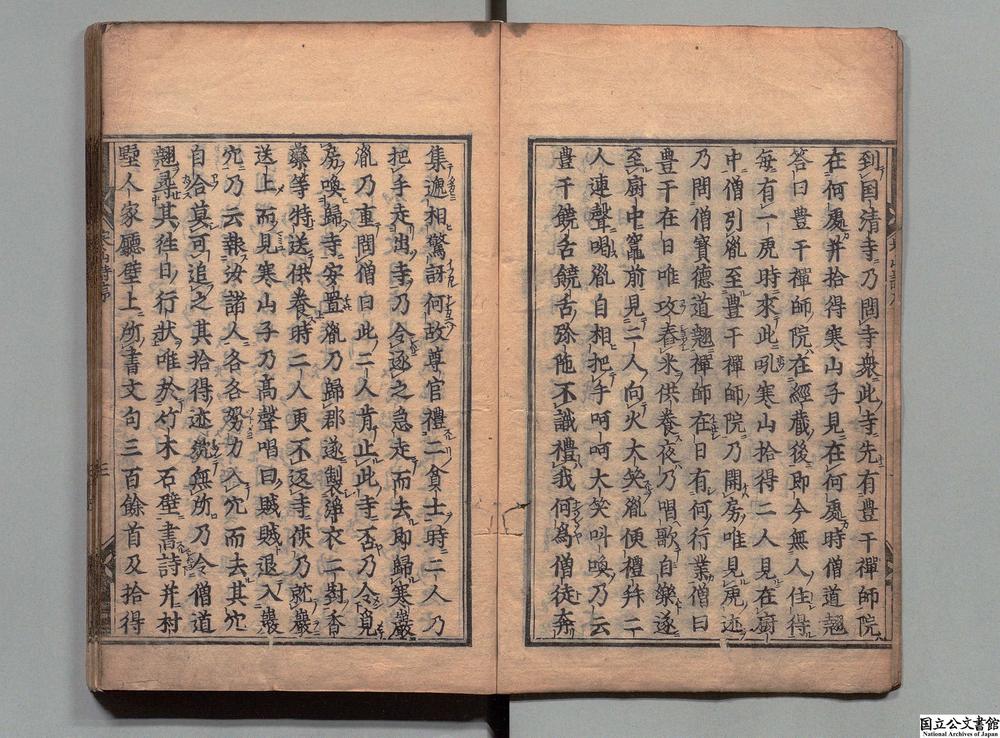 到国清寺乃問寺衆此寺先有豊干禪師院
在何處并拾得寒山子見在何處時僧道翹
答曰豊干禪師院在經藏後即今無人住得
毎有一虎時來此吼寒山拾得二人見在厨
中僧引胤至豊干禪師院乃開房唯見虎迹
乃問僧寳德道翹禪師在日有何行業僧曰
豊干在日唯攻舂米供養夜乃唱歌自樂遂
至厨中竈前見二人向火大笑胤便禮拜二
人連聲喝胤自相把手呵呵大笑叫喚乃云
豊干饒舌饒舌彌陁不識禮我何為僧徒奔
集遞相驚訝何故尊官禮二貧士時二人乃
把手走出寺乃令逐之急走而去即歸寒巖
胤乃重問僧曰此二人肯止此寺否乃令覓
房喚歸寺安置胤乃歸郡遂製淨衣二對香
藥等特送供養時二人更不返寺使乃就巖
送上而見寒山子乃高聲唱曰賊賊退入巖
穴乃云報汝諸人各各努力入穴而去其穴
自合莫可追之其拾得迹無所乃令僧道
翹尋其往日行狀唯於竹木石壁書詩并村
墅人家廳壁上所書文句三百餘首及拾得
寒山詩序
三
国立公文書館
National Archives of Japan